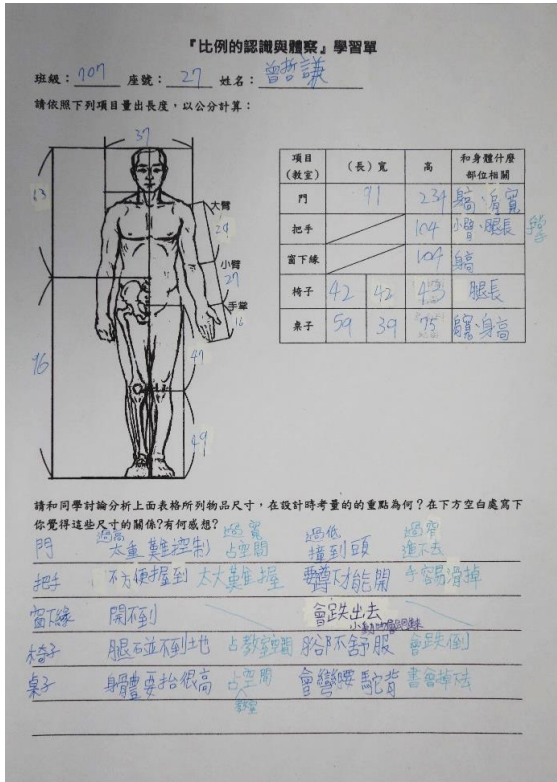 『比例的認識與體察』學習單
班級：707 座號：27 姓名：曾哲謙
請依照下列項目量出長度，以公分計算：
37
63
大臂
29
小臂
27
手掌
16
96
47
49
項目(教室) (長) 寬 高 和身體什麼部位相關
門 91 234 身高、肩寬
把手 104 小臂、腿長 手掌
窗下緣 104 身高
椅子 42 42 43 腿長
桌子 59 39 75 身高
請和同學討論分析上面表格所列物品尺寸，在設計時考量的的重點為何？在下方空白處寫下
你覺得這些尺寸的關係?有何感想?
過高 過寬 過低 過窄
門 太重難控制 占空間 撞到頭 進不去
把手 不方便握到 太大難握 要蹲才能開 手容易滑掉
窗下緣 開不到 會跌出去
小動物會跑進來
椅子 腿碰不到地 占教室空間 腳不舒服 會跌倒
桌子 身體要抬很高 占空間 會彎腰駝背 書會掉下去
教室